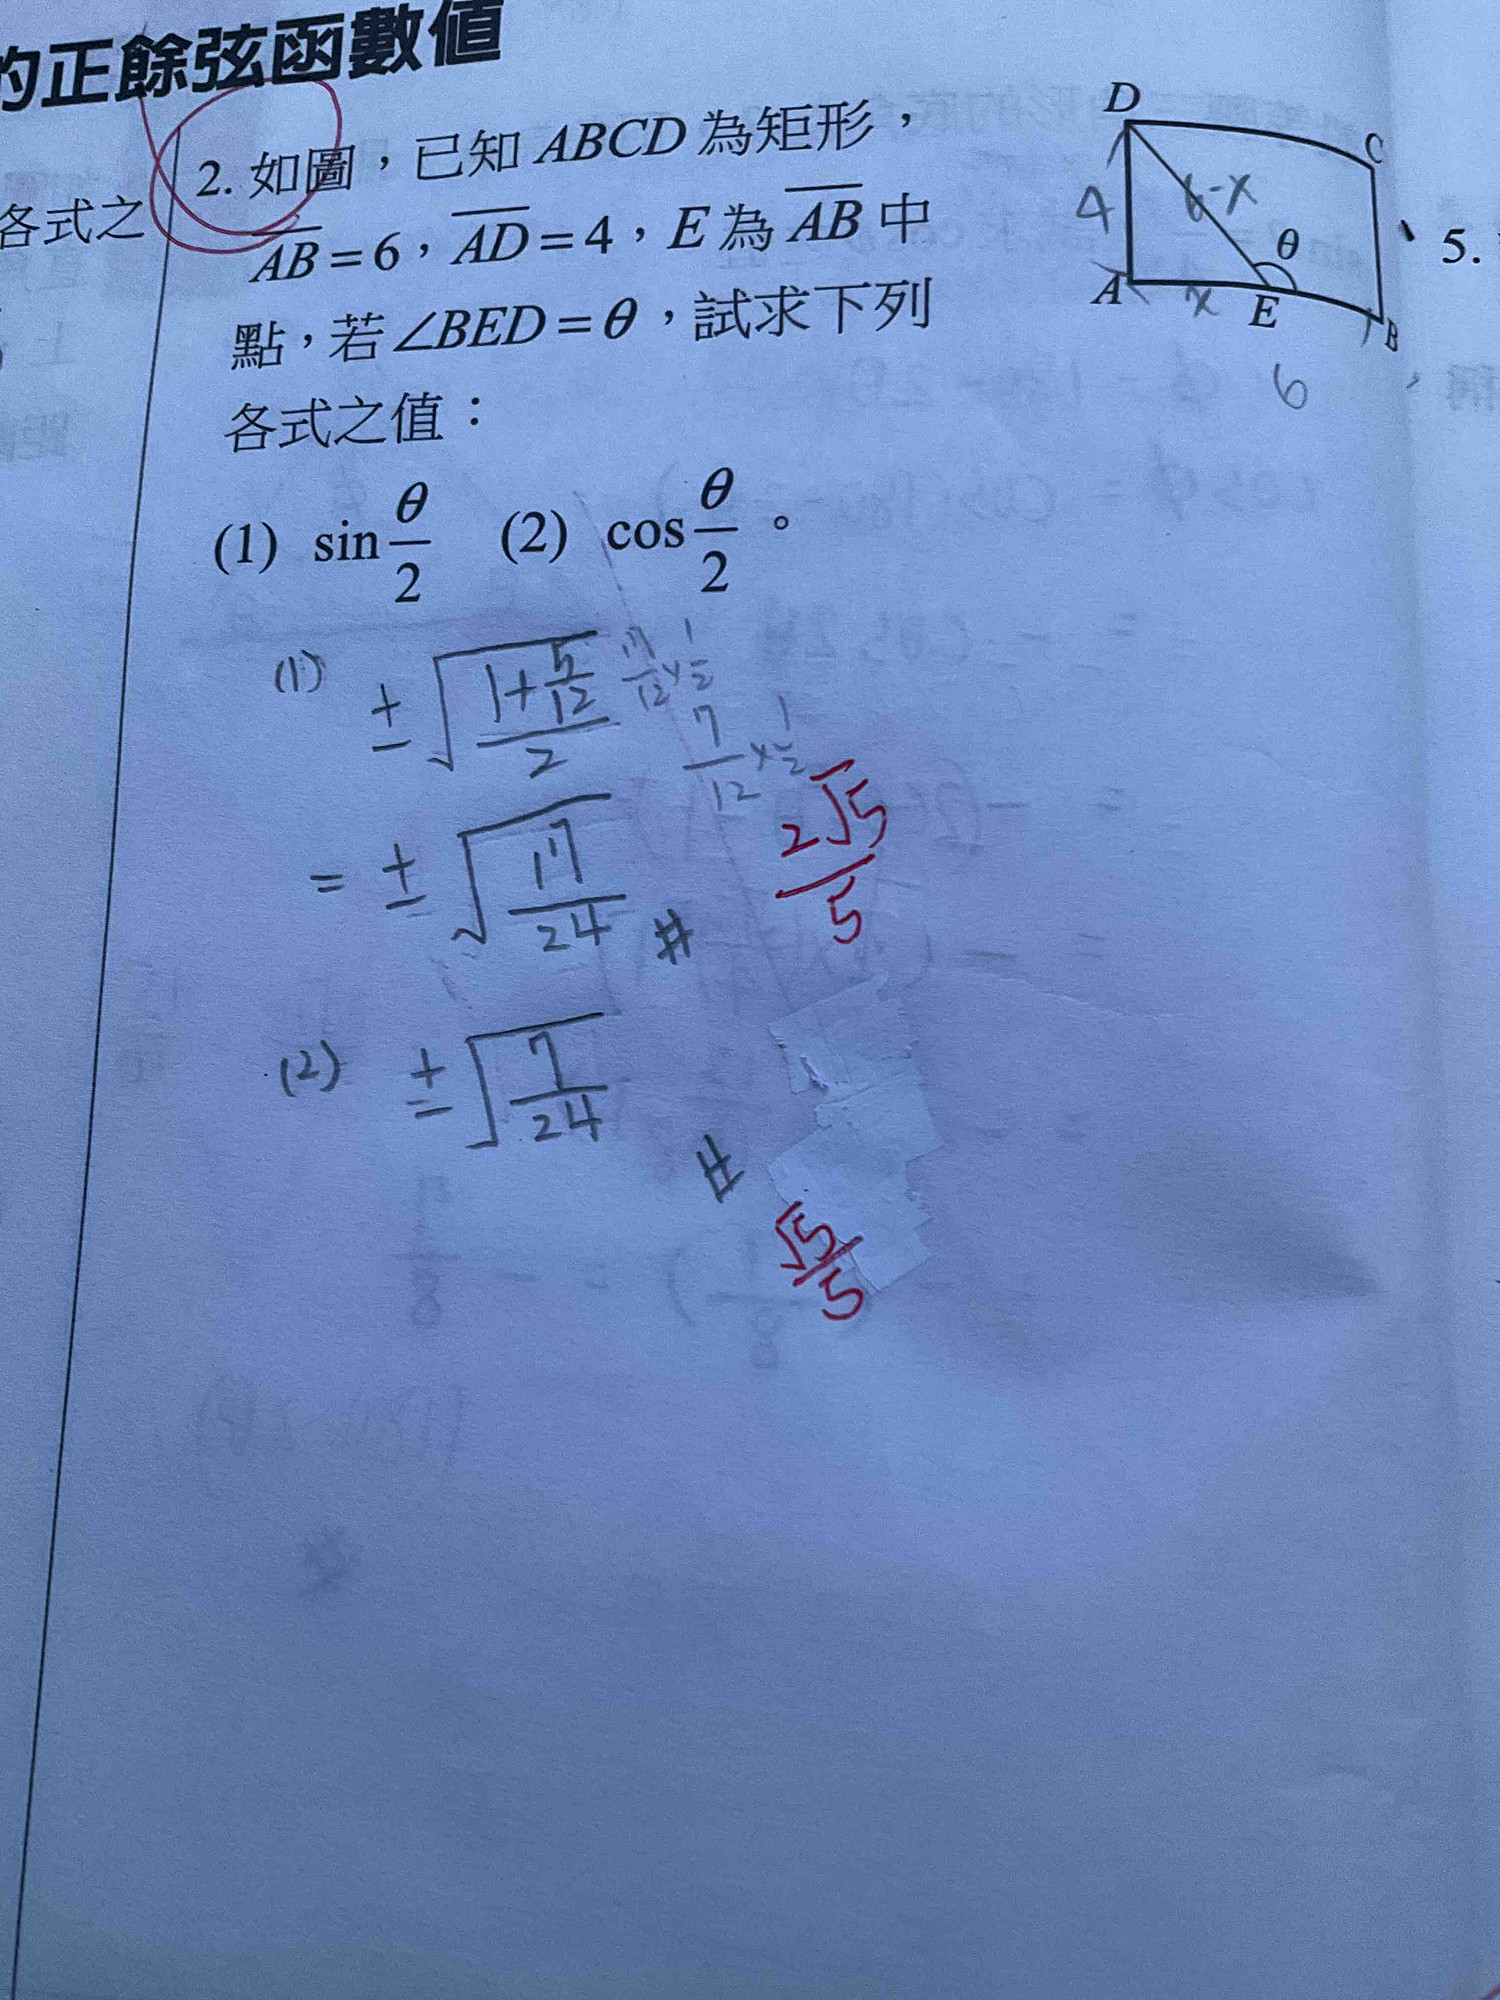 的正餘弦函數值
各式之
2. 如圖，已知 ABCD 為矩形，
AB=6，AD=4，E 為 AB 中
點，若∠BED=θ，試求下列
各式之值：
(1) sin θ/2 (2) cos θ/2。
D
C
4
6-x
θ
A
x
E
B
6
5.
(1) ± √((1+5/12)/2) 17/12×1/2
7/12×1/2
= ± √(17/24) #
2√5/5
(2) ± √(7/24) #
√5/5